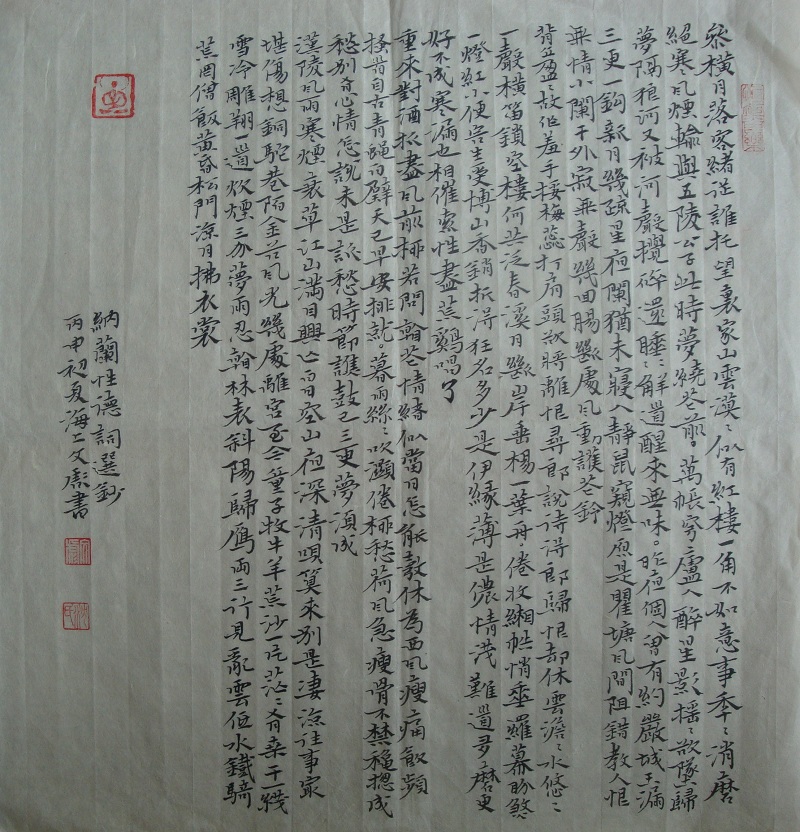 参橫月落客緒從誰托望裏家山雲漠〻似有紅樓一角不如意事年〻消磨
絕寒風煙輸與五陵公子此時夢繞花前萬帳穹廬人醉星影搖〻欲墜歸
夢隔狼河又被河聲攪碎還睡〻解道醒來無味昨夜個人曾有約嚴城玉漏
三更一鉤新月幾疏星夜闌猶未寢人靜鼠窺燈原是瞿塘風間阻錯教人恨
無情小闌干外寂無聲幾回腸斷處風動護花鈴
背盈〻故作羞手挼梅蕊打肩頭欲將離恨尋郎說待得郎歸恨却休雲澹〻水悠〻
一聲橫笛鎖空樓何共泛春溪月斷岸垂楊一葉舟倦收緗帙悄垂羅幕盼煞
一燈紅小便容生受博山香銷折得狂名多少是伊緣薄是儂情淺難道多磨更
好不成寒漏也相催索性盡荒雞唱了
重來對酒折盡風前柳若問看花情緒似當日怎能彀休為西風瘦痛飲頻
搔首自古青蠅白璧天已早安排就暮雨絲〻吹濕倦柳愁荷風急瘦骨不禁秋總成
愁別意心情怎說未是訴愁時節譙鼓已三更夢須成
漢陵風雨寒煙衰草江山滿目興亡白日空山夜深清唄算來別是淒涼往事最
堪傷想銅駝巷陌金谷風光幾處離宮至今童子牧牛羊荒沙一片茫〻有桑干一綫
雪冷雕翔一道炊煙三分夢雨忍看林表斜陽歸雁兩三行見亂雲低水鐵騎
荒岡僧飯黃昏松門涼月拂衣裳
納蘭性德詞選鈔
丙申初夏海上文彪書